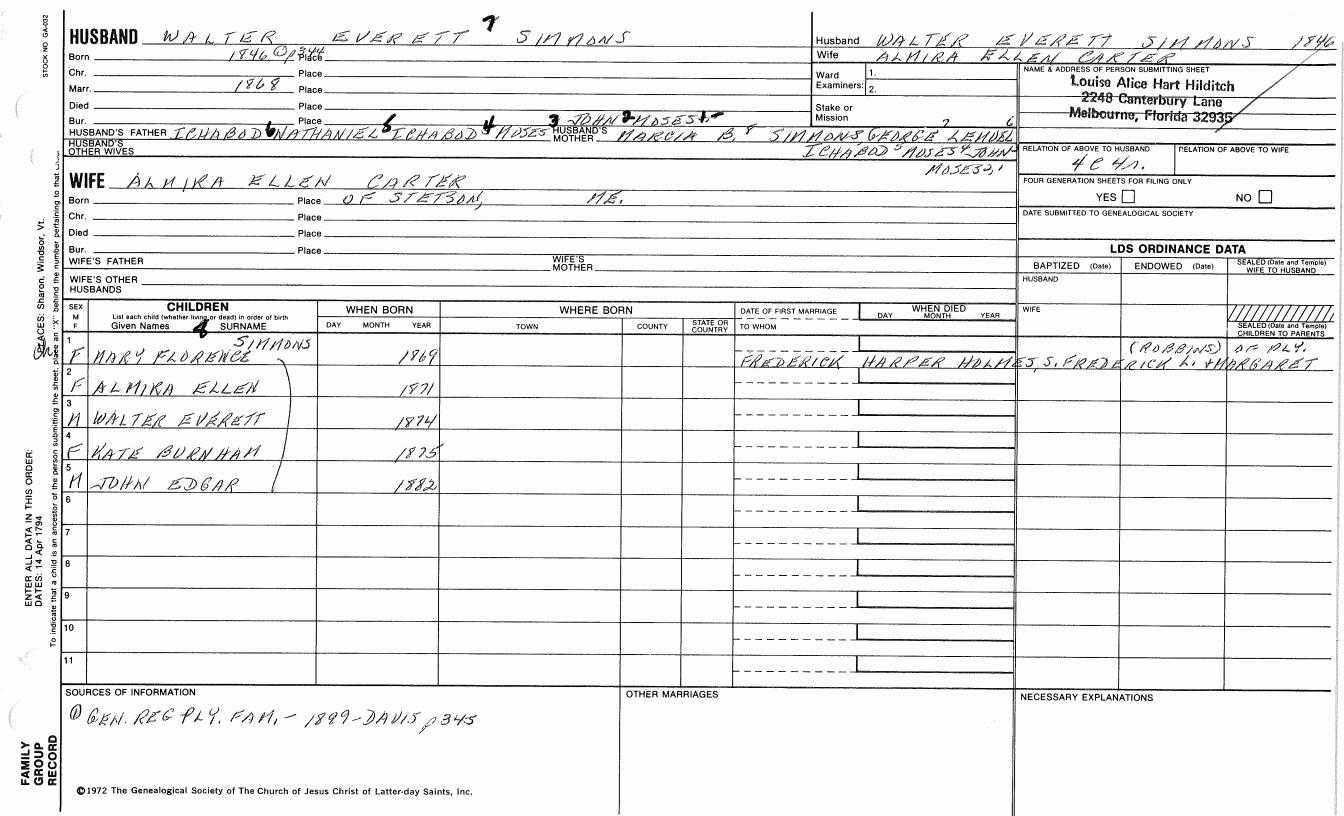 STOCK NO. GA-032
HUSBAND WALTER EVERETT 7 SIMMONS
Born 1846 ① p344 Place
Chr. Place
Marr. 1868 Place
Died Place
Bur. Place 3 JOHN 2 MOSES 1
HUSBAND'S FATHER ICHABOD 6 NATHANIEL 5 ICHABOD 4 MOSES HUSBAND'S MOTHER MARCIA B. 8 SIMMONS 7 GEORGE 6 LEMUEL
HUSBAND'S OTHER WIVES ICHABOD 5 MOSES 4 JOHN
MOSES 2, 1
Husband WALTER EVERETT SIMMONS 1846
Wife ALMIRA ELLEN CARTER
Ward Examiners: 1.
2.
Stake or Mission
NAME & ADDRESS OF PERSON SUBMITTING SHEET
Louise Alice Hart Hilditch
2248 Canterbury Lane
Melbourne, Florida 32935
RELATION OF ABOVE TO HUSBAND RELATION OF ABOVE TO WIFE
4C 4r.
FOUR GENERATION SHEETS FOR FILING ONLY
YES NO
DATE SUBMITTED TO GENEALOGICAL SOCIETY
WIFE ALMIRA ELLEN CARTER
Born Place OF STETSON, ME.
Chr. Place
Died Place
Bur. Place
WIFE'S FATHER WIFE'S MOTHER
WIFE'S OTHER HUSBANDS
LDS ORDINANCE DATA
BAPTIZED (Date) ENDOWED (Date) SEALED (Date and Temple) WIFE TO HUSBAND
HUSBAND
WIFE
SEALED (Date and Temple) CHILDREN TO PARENTS
SEX M F CHILDREN WHEN BORN WHERE BORN DATE OF FIRST MARRIAGE WHEN DIED
List each child (whether living or dead) in order of birth
Given Names 8 SURNAME DAY MONTH YEAR TOWN COUNTY STATE OR COUNTRY TO WHOM DAY MONTH YEAR
1 SIMMONS (ROBBINS) OF PLY.
F MARY FLORENCE 1869 FREDERICK HARPER HOLMES, S. FREDERICK L. & MARGARET
2
F ALMIRA ELLEN 1871
3
M WALTER EVERETT 1874
4
F KATE BURNHAM 1875
5
M JOHN EDGAR 1882
6
7
8
9
10
11
SOURCES OF INFORMATION OTHER MARRIAGES NECESSARY EXPLANATIONS
① GEN. REG PLY. FAM. - 1899 - DAVIS p345
©1972 The Genealogical Society of The Church of Jesus Christ of Latter-day Saints, Inc.
FAMILY GROUP RECORD
ENTER ALL DATA IN THIS ORDER:
DATES: 14 Apr 1794
PLACES: Sharon, Windsor, Vt.
To indicate that a child is an ancestor of the person submitting the sheet, place an "X" behind the number pertaining to that